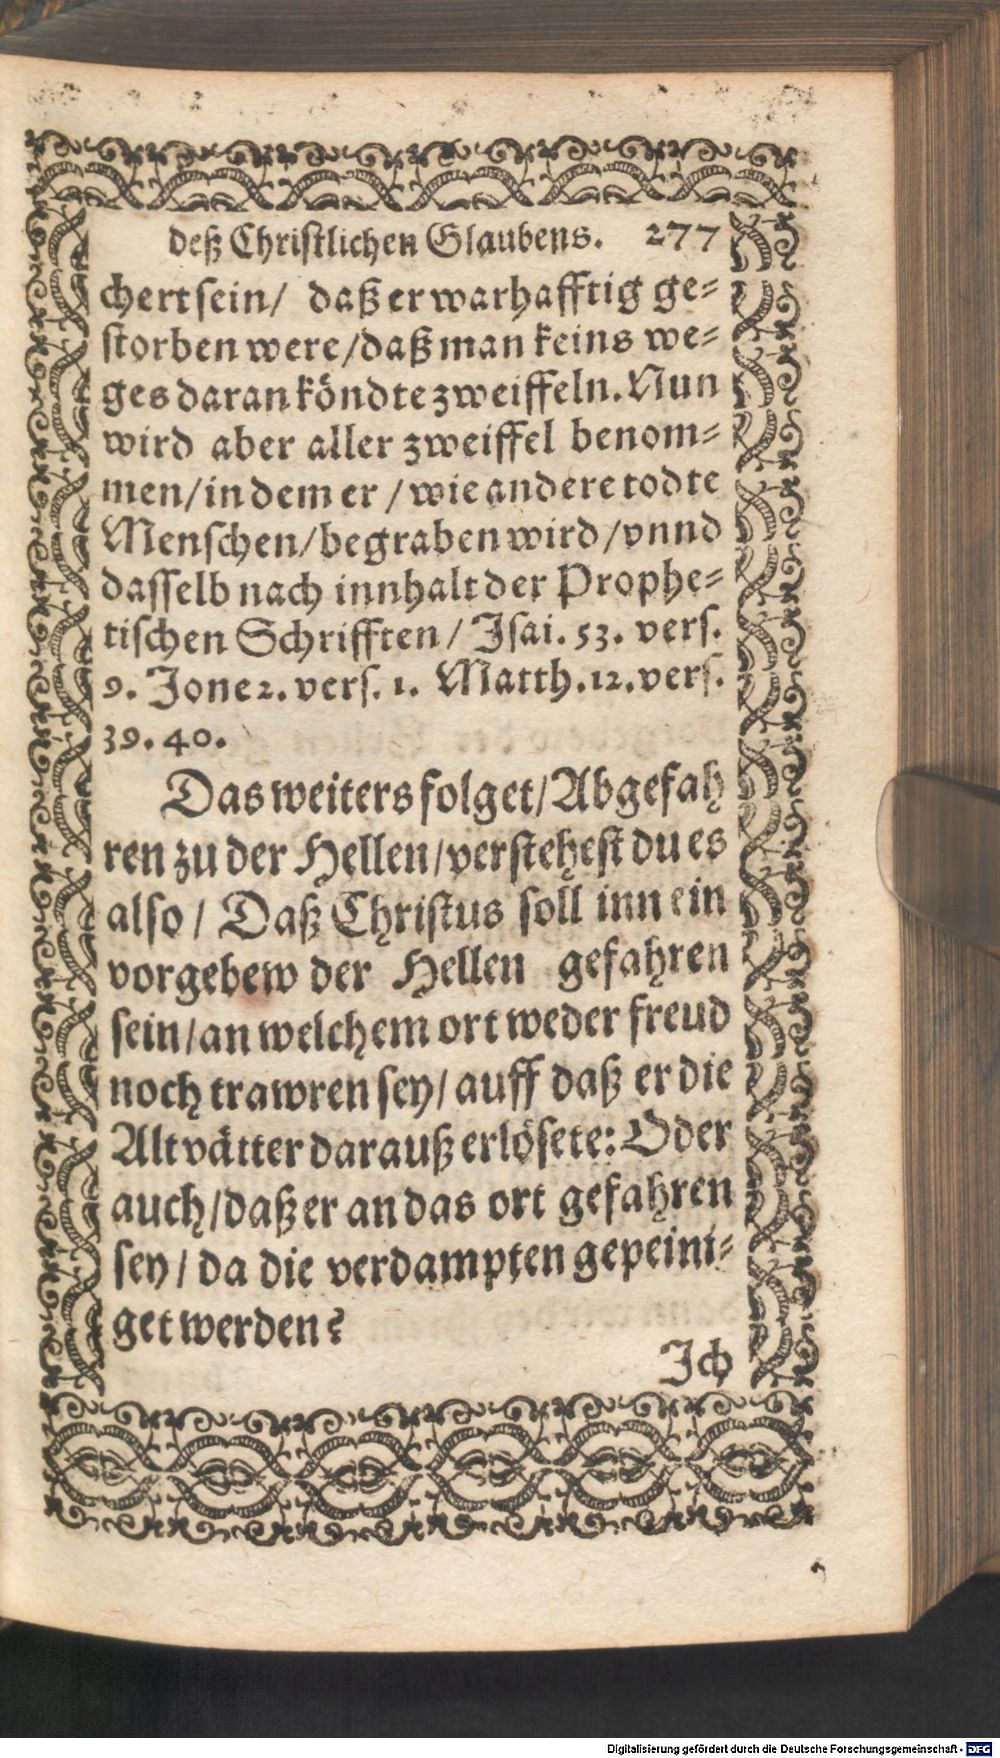 deß Christlichen Glaubens. 277
chert sein/ daß er warhafftig ge=
storben were/daß man keins we=
ges daran köndte zweiffeln. Nun
wird aber aller zweiffel benom=
men/in dem er/wie andere todte
Menschen/begraben wird/vnnd
dasselb nach innhalt der Prophe=
tischen Schrifften/ Isai. 53. vers.
9. Jone 2. vers. 1. Matth. 12. vers.
39. 40.
Das weiters folget/Abgefah
ren zu der Hellen/verstehest du es
also/ Daß Christus soll inn ein
vorgebew der Hellen gefahren
sein/an welchem ort weder freud
noch trawren sey/auff daß er die
Altvätter darauß erlösete: Oder
auch/daß er an das ort gefahren
sey/da die verdampten gepeini=
get werden?
Ich
Digitalisierung gefördert durch die Deutsche Forschungsgemeinschaft - DFG